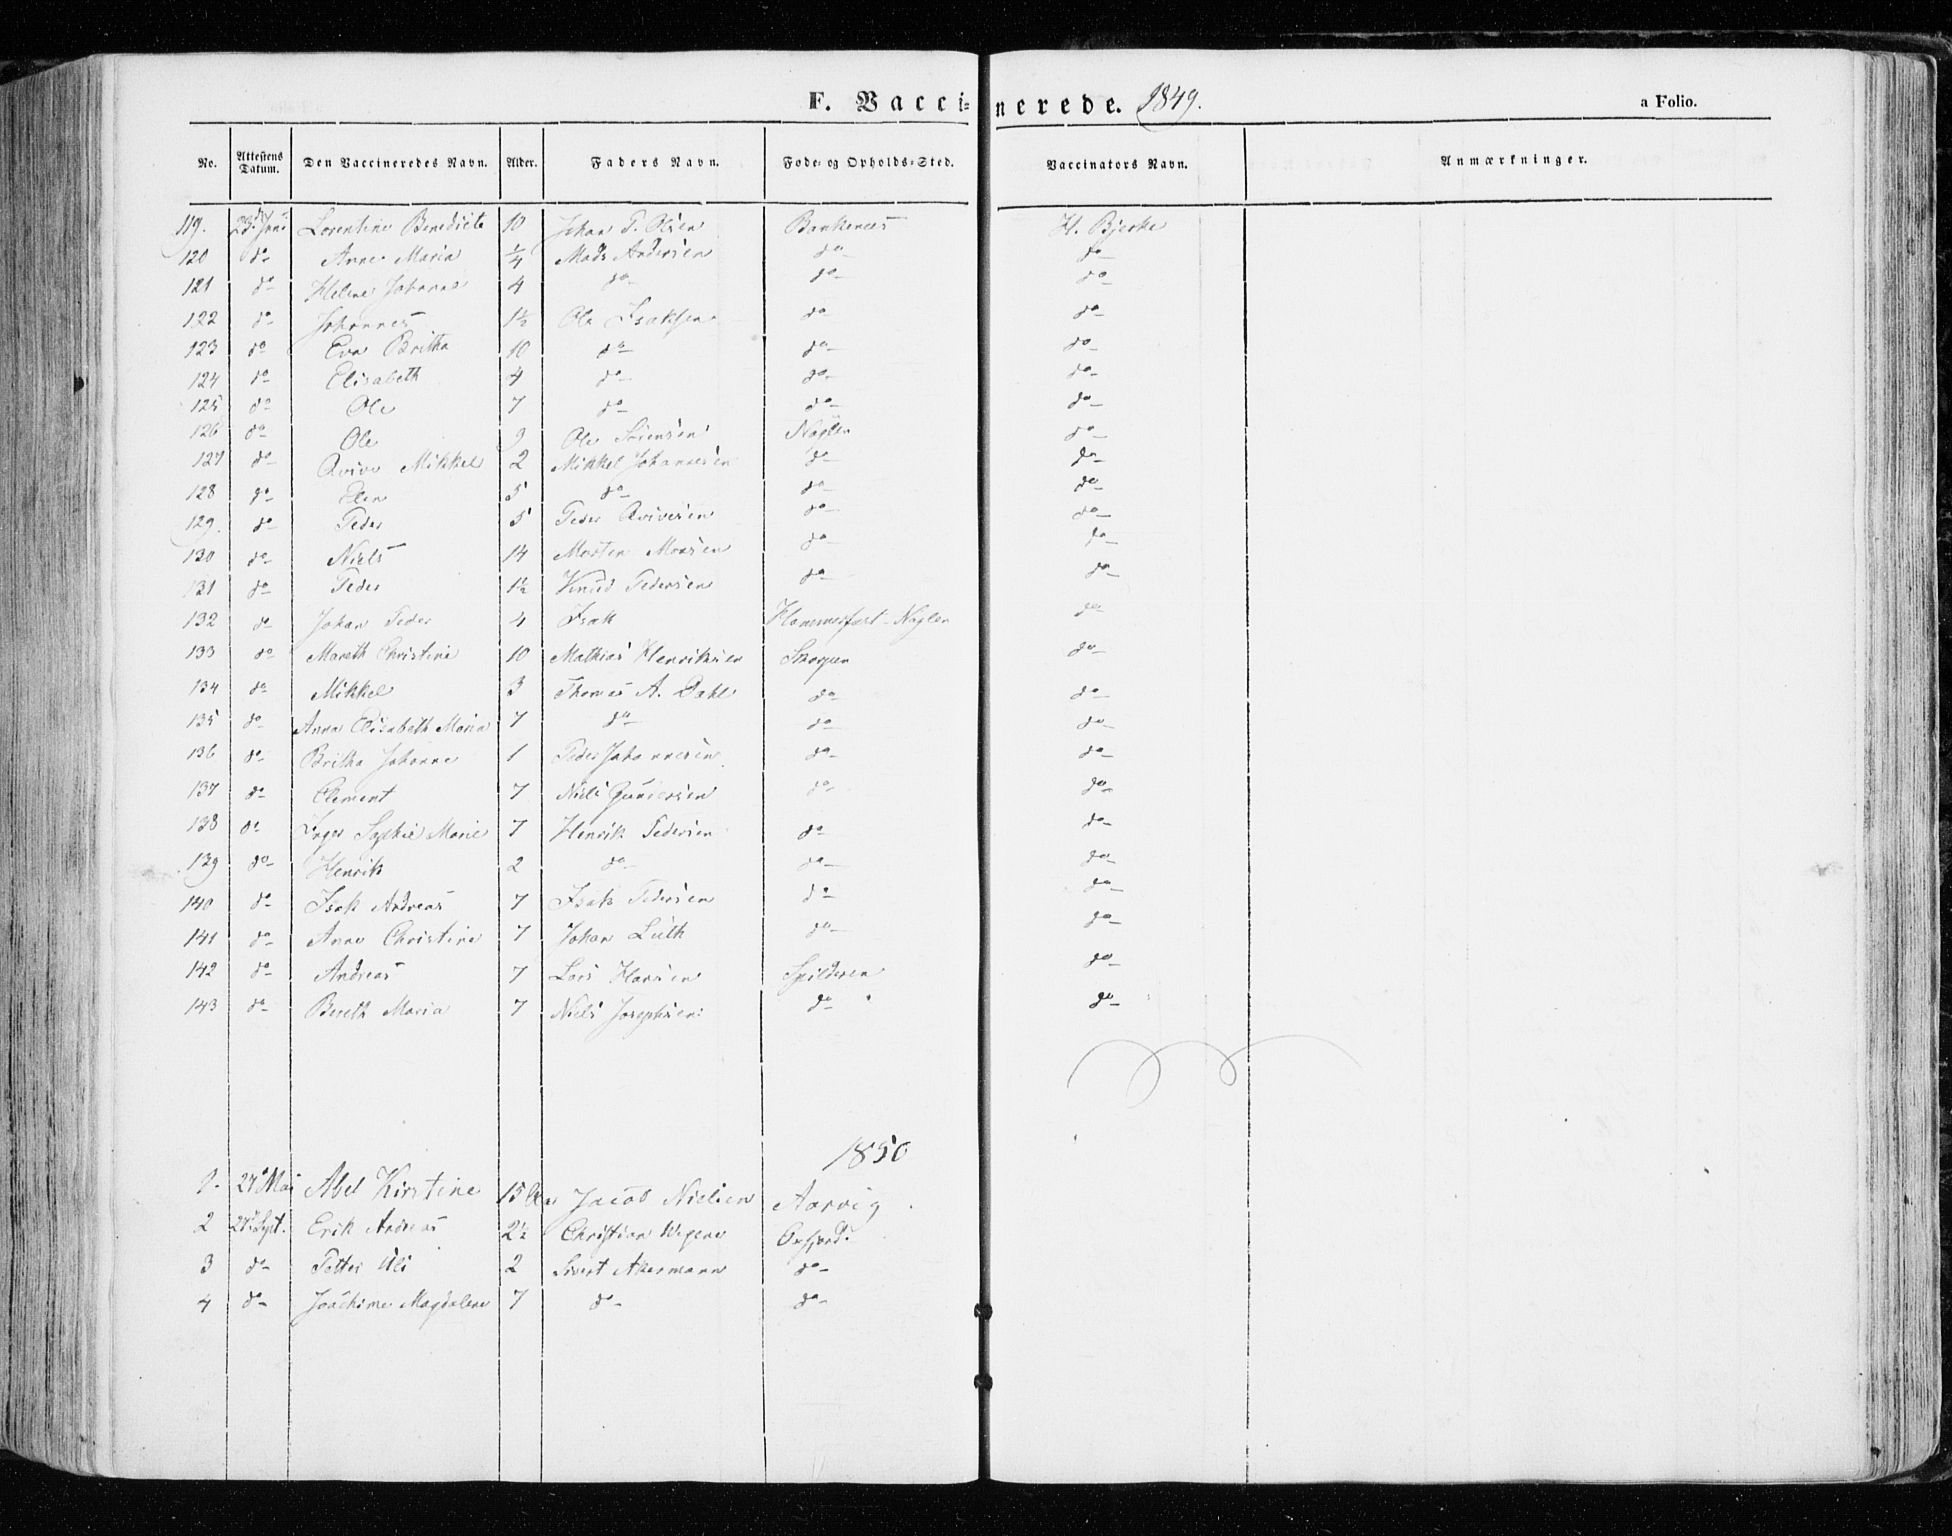 F. Vaccinerede. 1849. a Folio.
No. Attestens Datum. Den Vaccineredes Navn. Alder. Faders Navn. Føde- og Opholds-Sted. Vaccinators Navn. Anmærkninger.
119. 23 Juni Lorentine Benedicte 10 Johan P. Olsen Bankenes H. Bjerke
120 do Anne Maria 1/4 Mads Andersen do do
121 do Helene Johanne 4 do do do
122 do Johannes 1½ Ole Isaksen do do
123 do Eva Britha 10 do do do
124 do Elisabeth 4 do do do
125 do Ole 7 do do do
126 do Ole 9 Ole Sørensen Nøglen do
127 do Qvive Mikkel 2 Mikkel Johannesen do do
128 do Elen 5 do do do
129. do Peder 5 Peder Qvivesen do do
130 do Niels 14 Morten Monsen do do
131 do Peder 1½ Knud Pedersen do do
132 do Johan Peder 4 Isak Hammerfest - Nøglen do
133 do Mareth Christine 10 Mathias Henriksen Skorpen do
134 do Mikkel 3 Thomas A. Dahl do do
135 do Anna Elisabeth Maria 7 do do do
136 do Britha Johanne 1 Peder Johannesen do do
137 do Clement 7 Niels Gundersen do do
138 do Inger Sophie Marie 7 Henrik Pedersen do do
139 do Henrik 2 do do do
140 do Isak Andreas 7 Isak Pedersen do do
141 do Anne Christine 7 Johan Lüth do do
142 do Andreas 7 Lars Hansen Spilderen do
143 do Bereth Maria 7 Niels Josephsen do do
1850
1. 27 Mai Abel Kirstine 15 Aar Jacob Nielsen Aarvig
2 27 Sept. Erik Andreas 2½ Christian Wigene Oxfjord
3 do Petter Uli 2 Sivert Akermann do
4 do Joachime Magdalene 7 do do